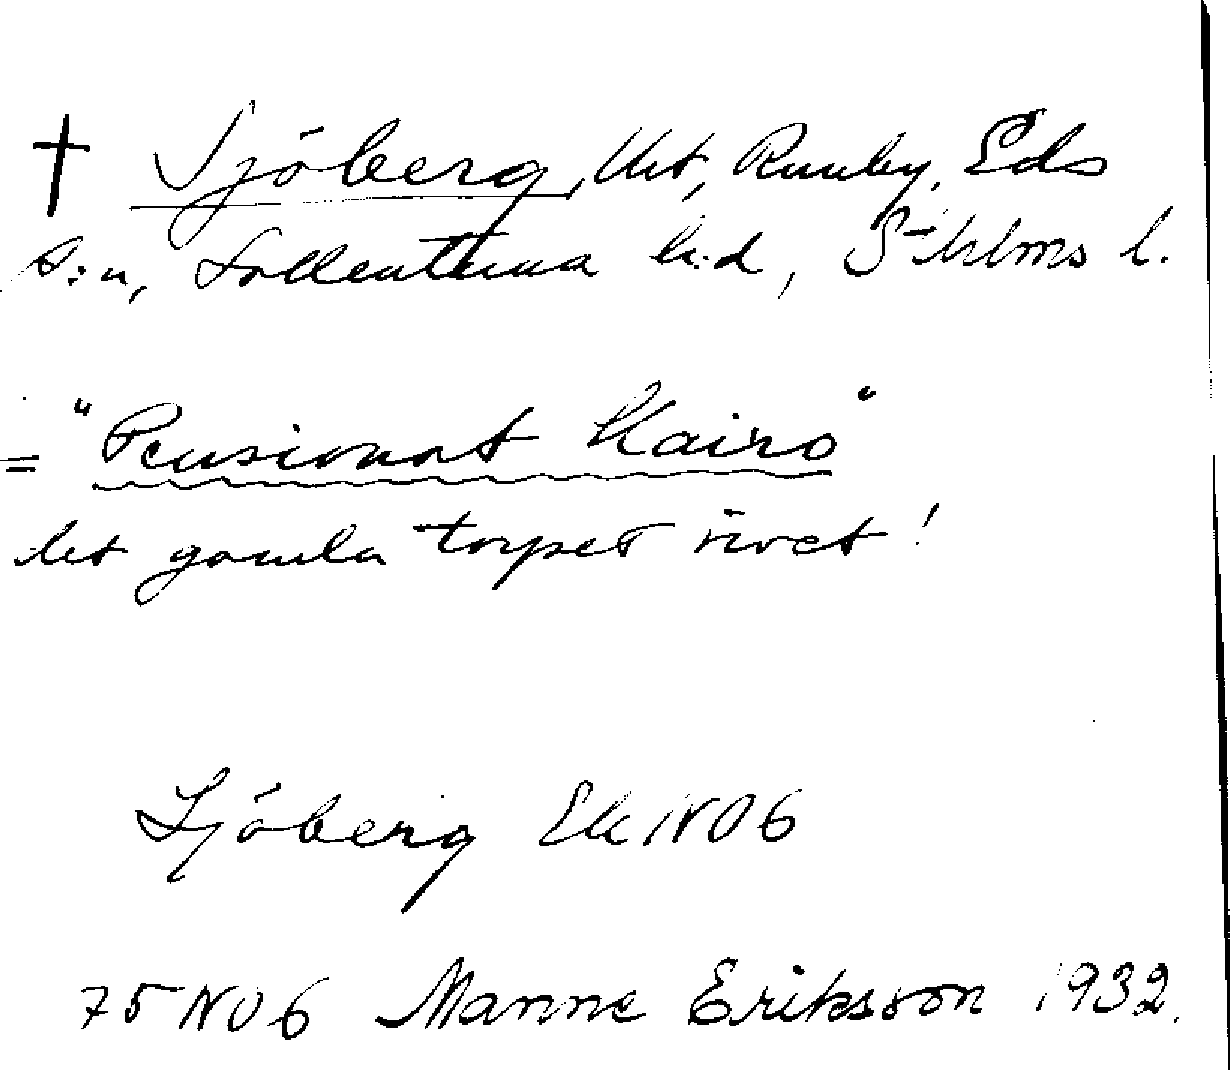 † Sjöberg, lht, Runby, Eds
s:n, Sollentuna h:d, Sthlms l.
= "Pensionat Kairo"
det gamla torpet rivet!
Sjöberg Ek NO6
75 NO 6 Manne Eriksson 1932.